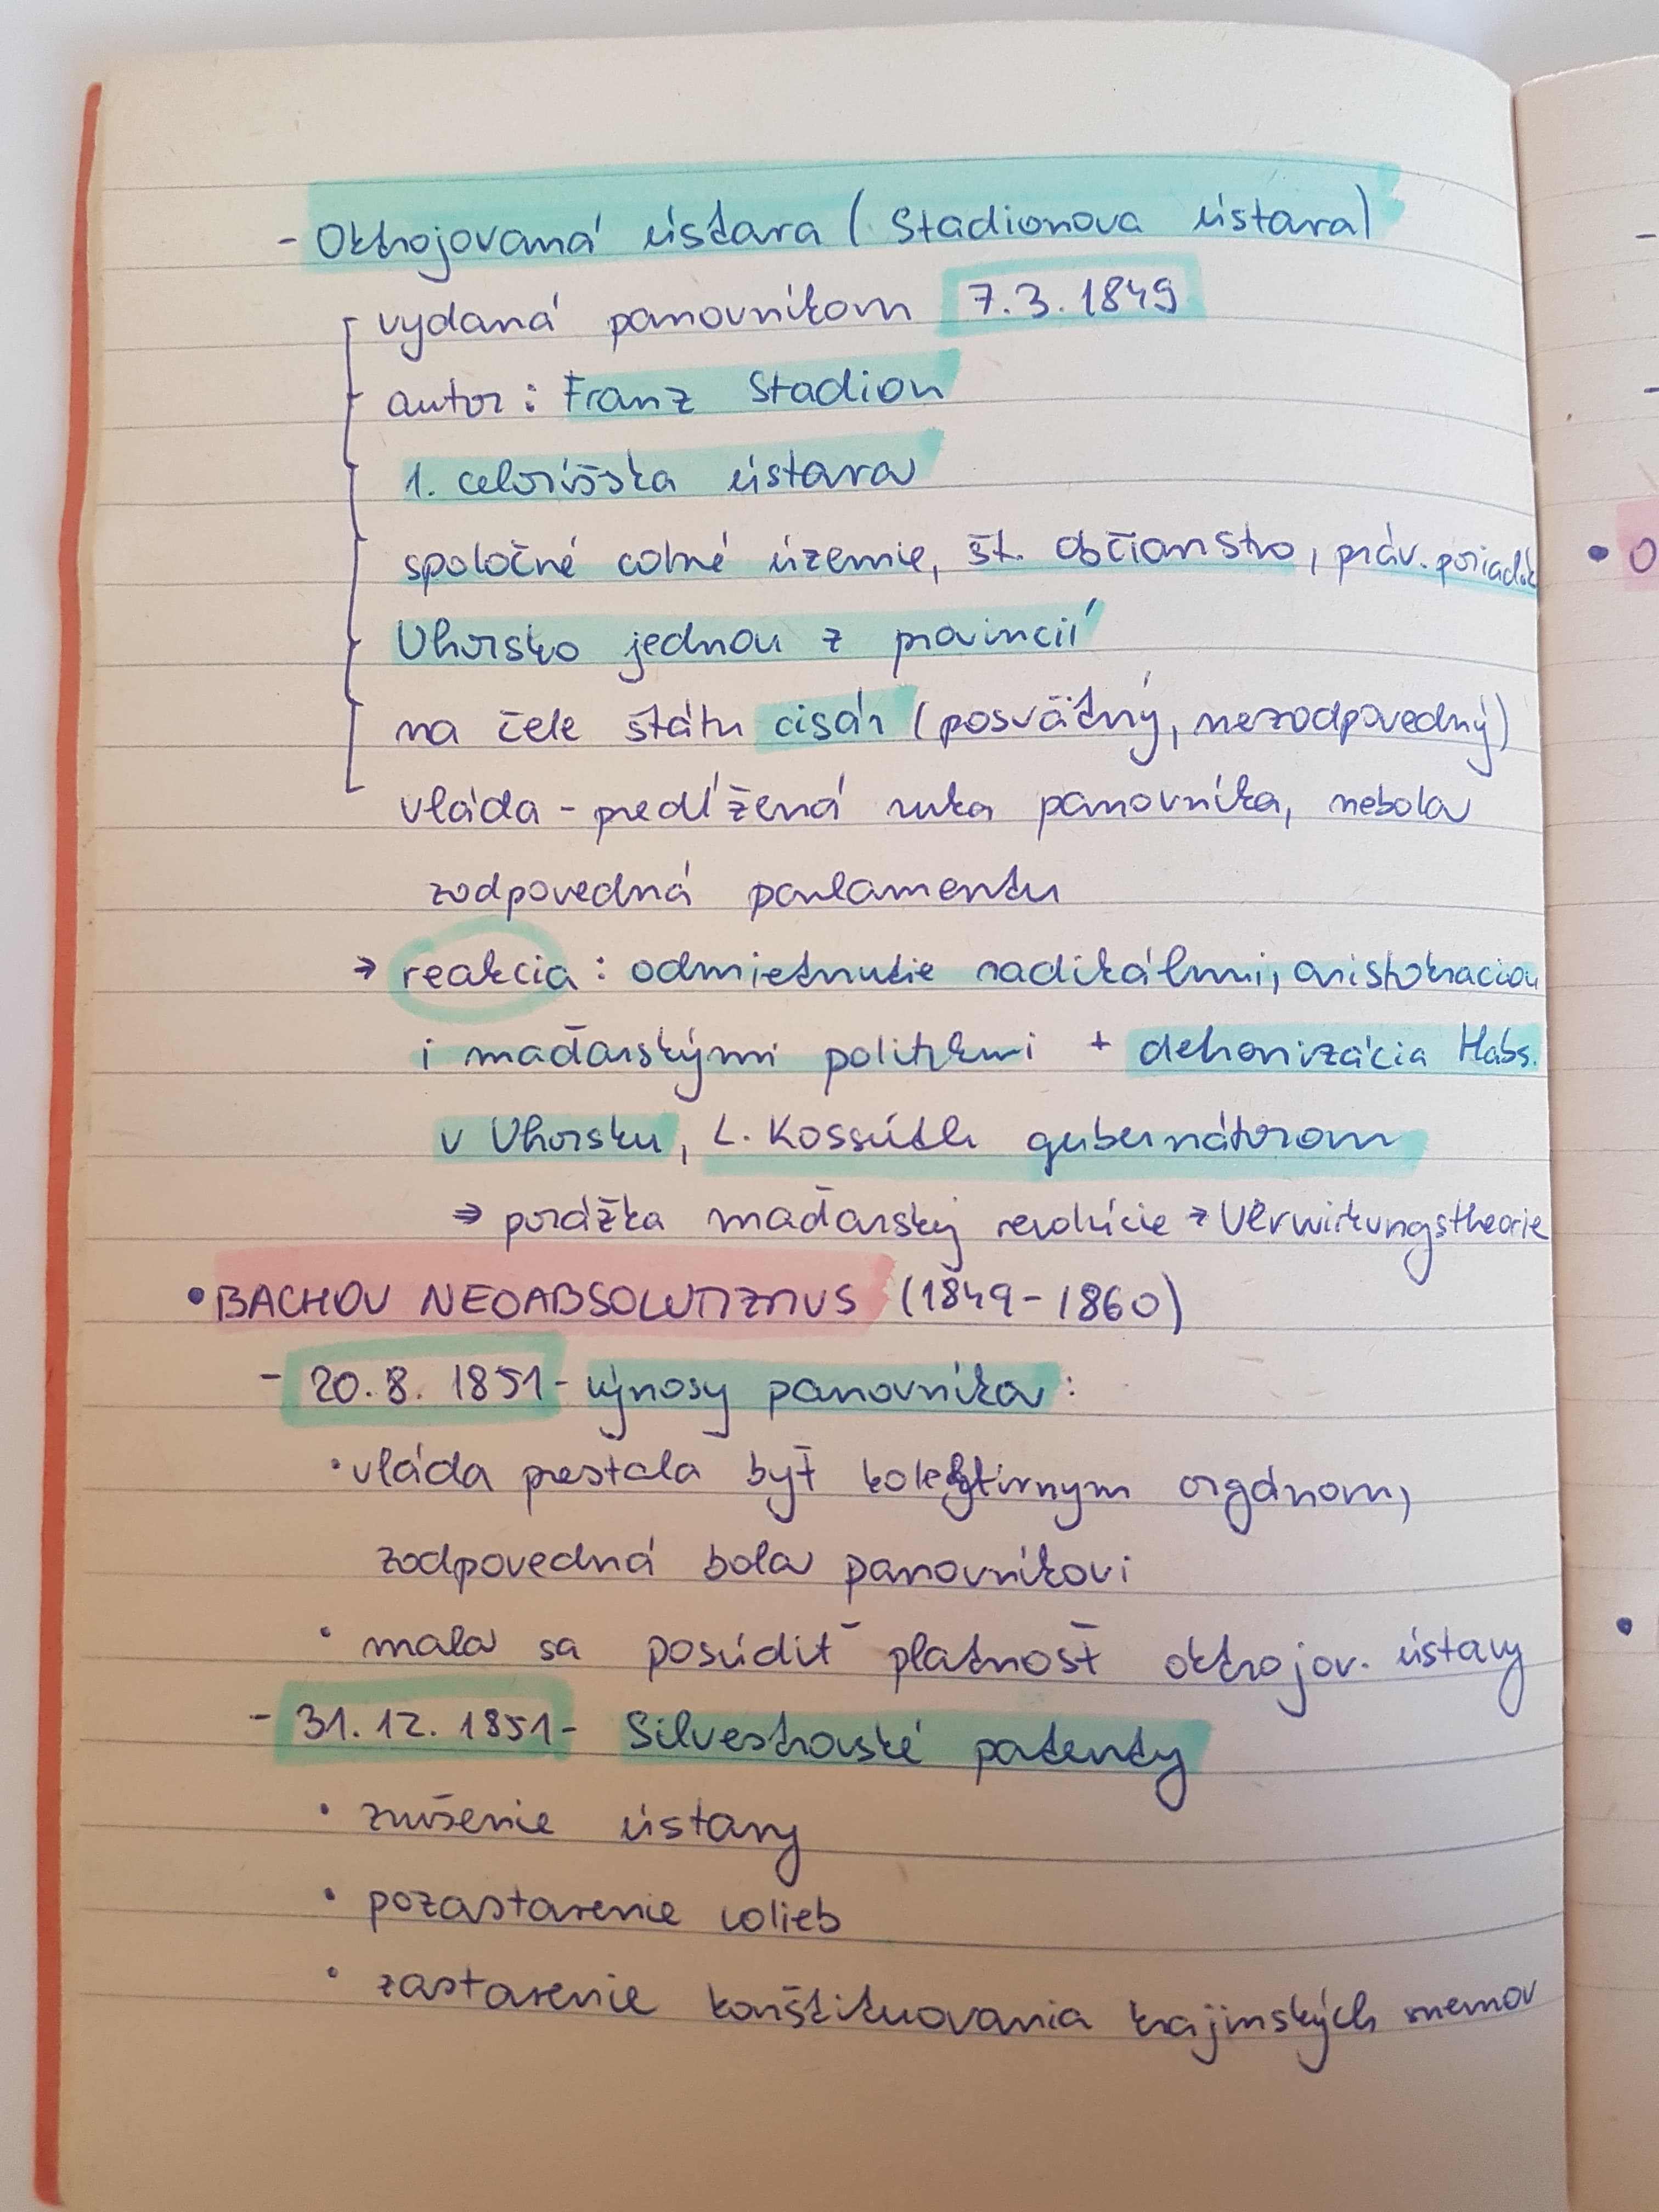 - Oktrojovaná ústava (Stadionova ústava)
vydaná panovníkom 7.3.1849
autor: Franz Stadion
1. celoríšska ústava
spoločné colné územie, št. občianstvo, práv. poriadok
Uhorsko jednou z provincií
na čele štátu cisár (posvätný, nezodpovedný)
vláda - predĺžená ruka panovníka, nebola
zodpovedná parlamentu
→ reakcia: odmietnutie radikálmi, aristokraciou
i maďarskými politikmi + detronizácia Habs.
v Uhorsku, L. Kossúth gubernátorom
⇒ porážka maďarskej revolúcie → Verwirkungstheorie
• BACHOV NEOABSOLUTIZMUS (1849-1860)
- 20.8. 1851 - výnosy panovníka:
• vláda prestala byť kolektívnym orgánom,
zodpovedná bola panovníkovi
• mala sa posúdiť platnosť oktrojov. ústavy
- 31.12. 1851 - Silvestrovské patenty
• zrušenie ústavy
• pozastavenie volieb
• zastavenie konštituovania krajinských snemov
• O